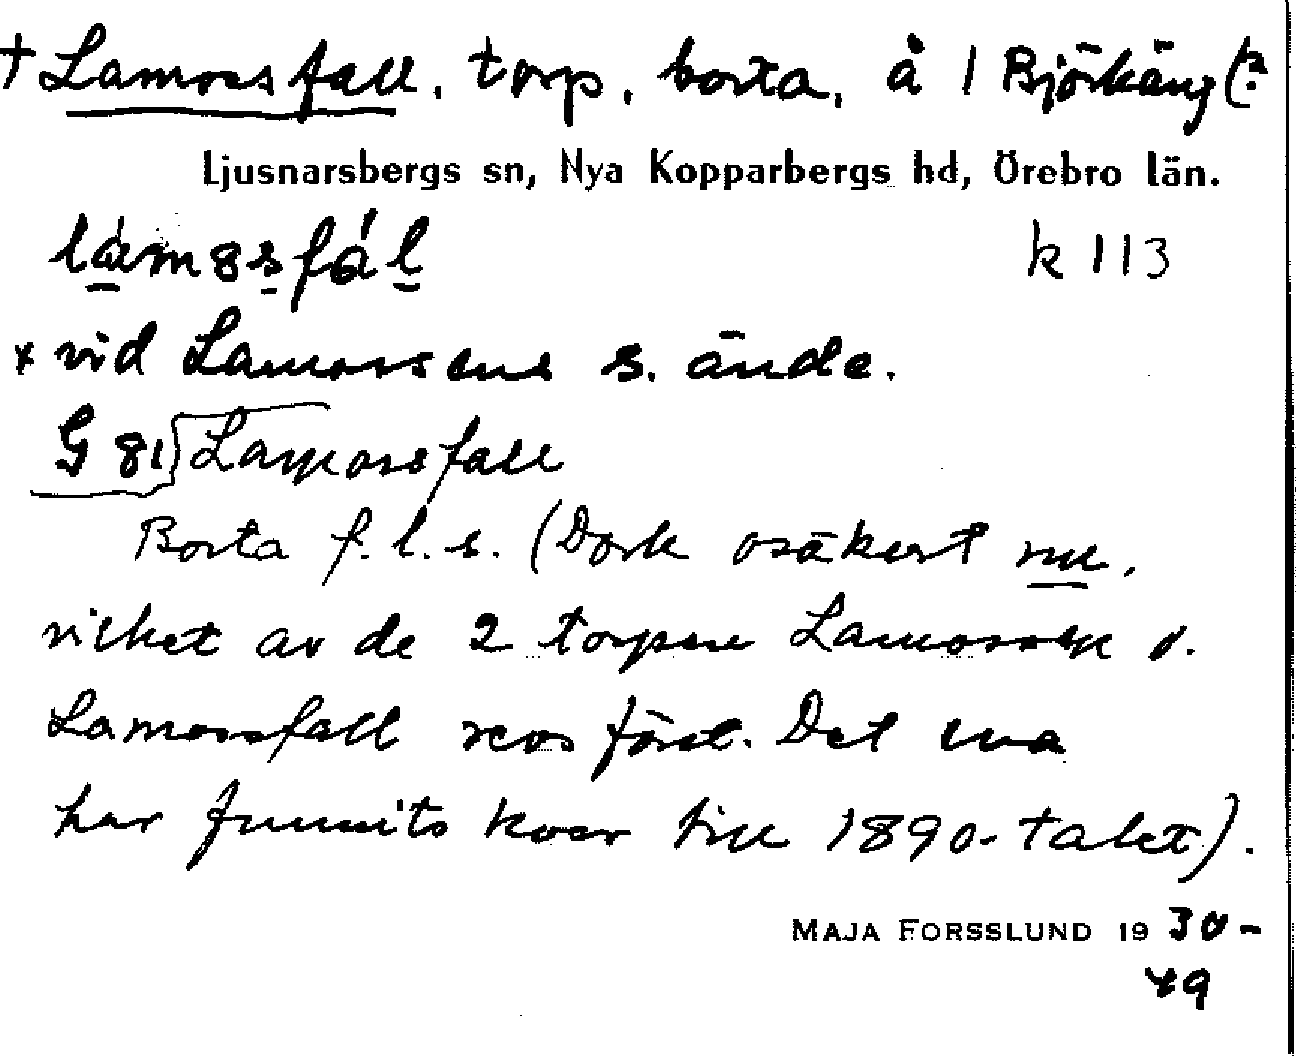 † Lamossfall, torp, borta, å 1 Björkäng (?
Ljusnarsbergs sn, Nya Kopparbergs hd, Örebro län.
k 113
× vid Lamossens s. ände.
G 81 Lamossfall
Borta f.l.s. (Dock osäkert nu,
vilket av de 2 torpen Lamossen o.
Lamossfall revs först. Det ena
har funnits kvar till 1890-talet).
MAJA FORSSLUND 19 30-
49